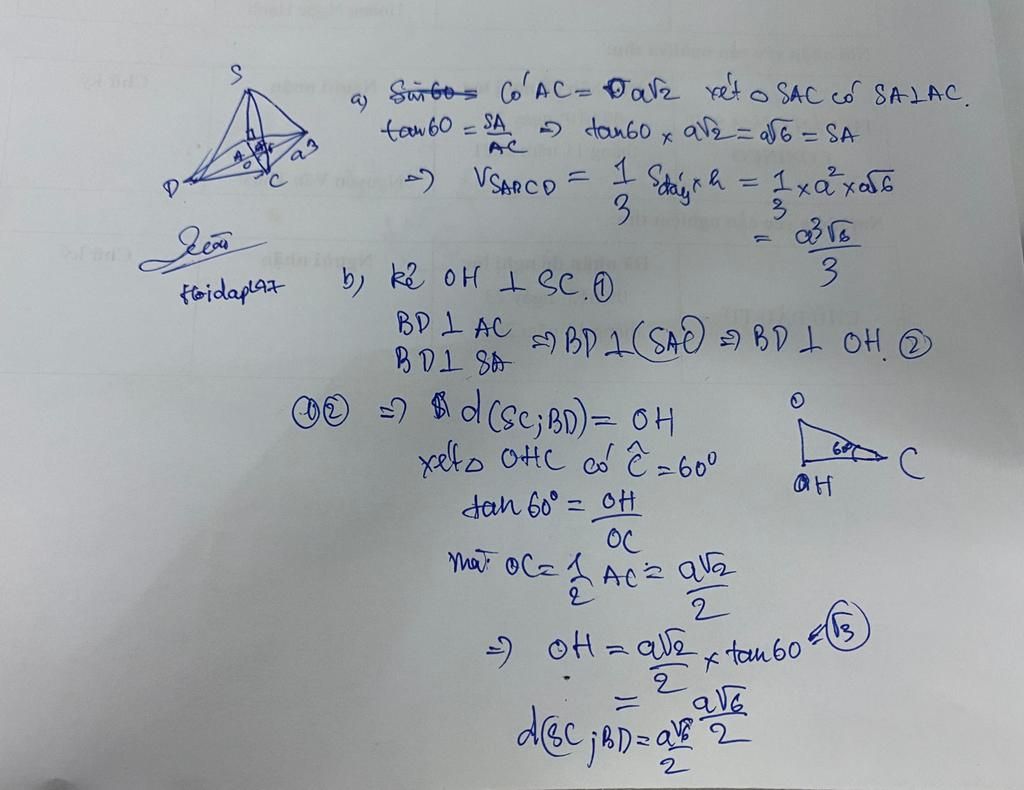 S
A
B
a
O
D
C
a) Sin60 = Có AC = a√2 xét △ SAC có SA⊥AC.
tan60 = SA/AC => tan60 × a√2 = a√6 = SA
=> VSABCD = 1/3 Sđáy × h = 1/3 × a² × a√6
= a³√6/3
Hoidap247
b) kẻ OH ⊥ SC. ①
BD ⊥ AC
BD ⊥ SA
=> BD ⊥ (SAC) => BD ⊥ OH. ②
①② => d(SC;BD) = OH
xét △ OHC có Ĉ = 60°
O
60°
C
H
tan 60° = OH/OC
mà: OC = 1/2 AC = a√2/2
=> OH = a√2/2 × tan60 = √3
= a√6/2
d(SC;BD) = a√6/2